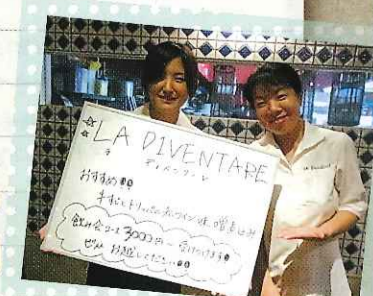 ☆LA DIVENTARE☆
ラ ディベンターレ
おすすめ!!
牛すじとトリッパの赤ワイン味噌煮込み
飲み会コース3000円〜受けつけます!!
ぜひ、お越しください…!!